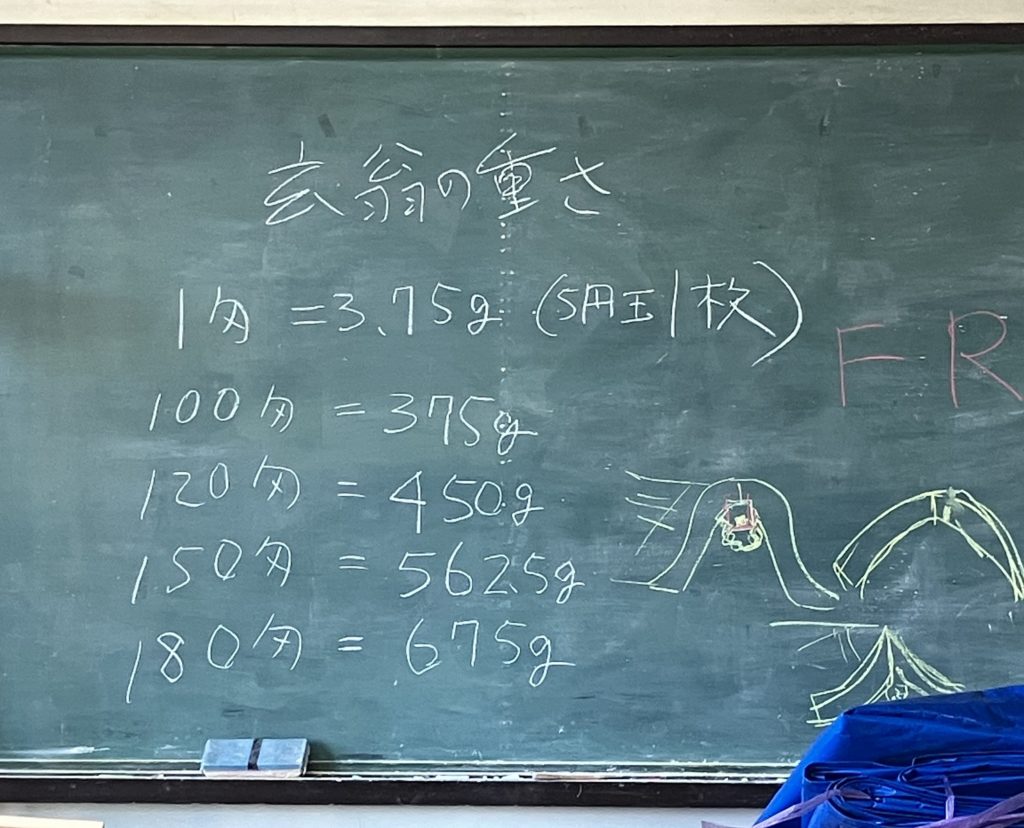 玄翁の重さ
1匁=3.75g(5円玉1枚)
100匁=375g
120匁=450g
150匁=562.5g
180匁=675g
FR